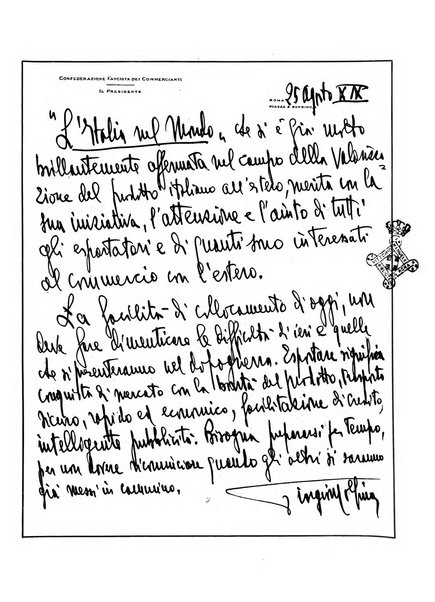 CONFEDERAZIONE FASCISTA DEI COMMERCIANTI
IL PRESIDENTE
ROMA 25 agosto XIX
PIAZZA
"L'Italia nel Mondo" che si è già molto
brillantemente affermata nel campo della valorizza
zione del prodotto italiano all'estero, merita con la
sua iniziativa, l'attenzione e l'aiuto di tutti
gli esportatori e di quanti sono interessati
al commercio con l'estero.
La facilità di collocamento di oggi, non
deve fare dimenticare le difficoltà di ieri e quelle
che si presenteranno nel dopoguerra. Esportare significa
conquista di mercato con la bontà del prodotto, trasporto
sicuro, rapido ed economico, facilitazione di credito,
intelligente pubblicità. Bisogna prepararsi per tempo,
per non dovere ricominciare quando gli altri si saranno
già messi in cammino.
Molfino